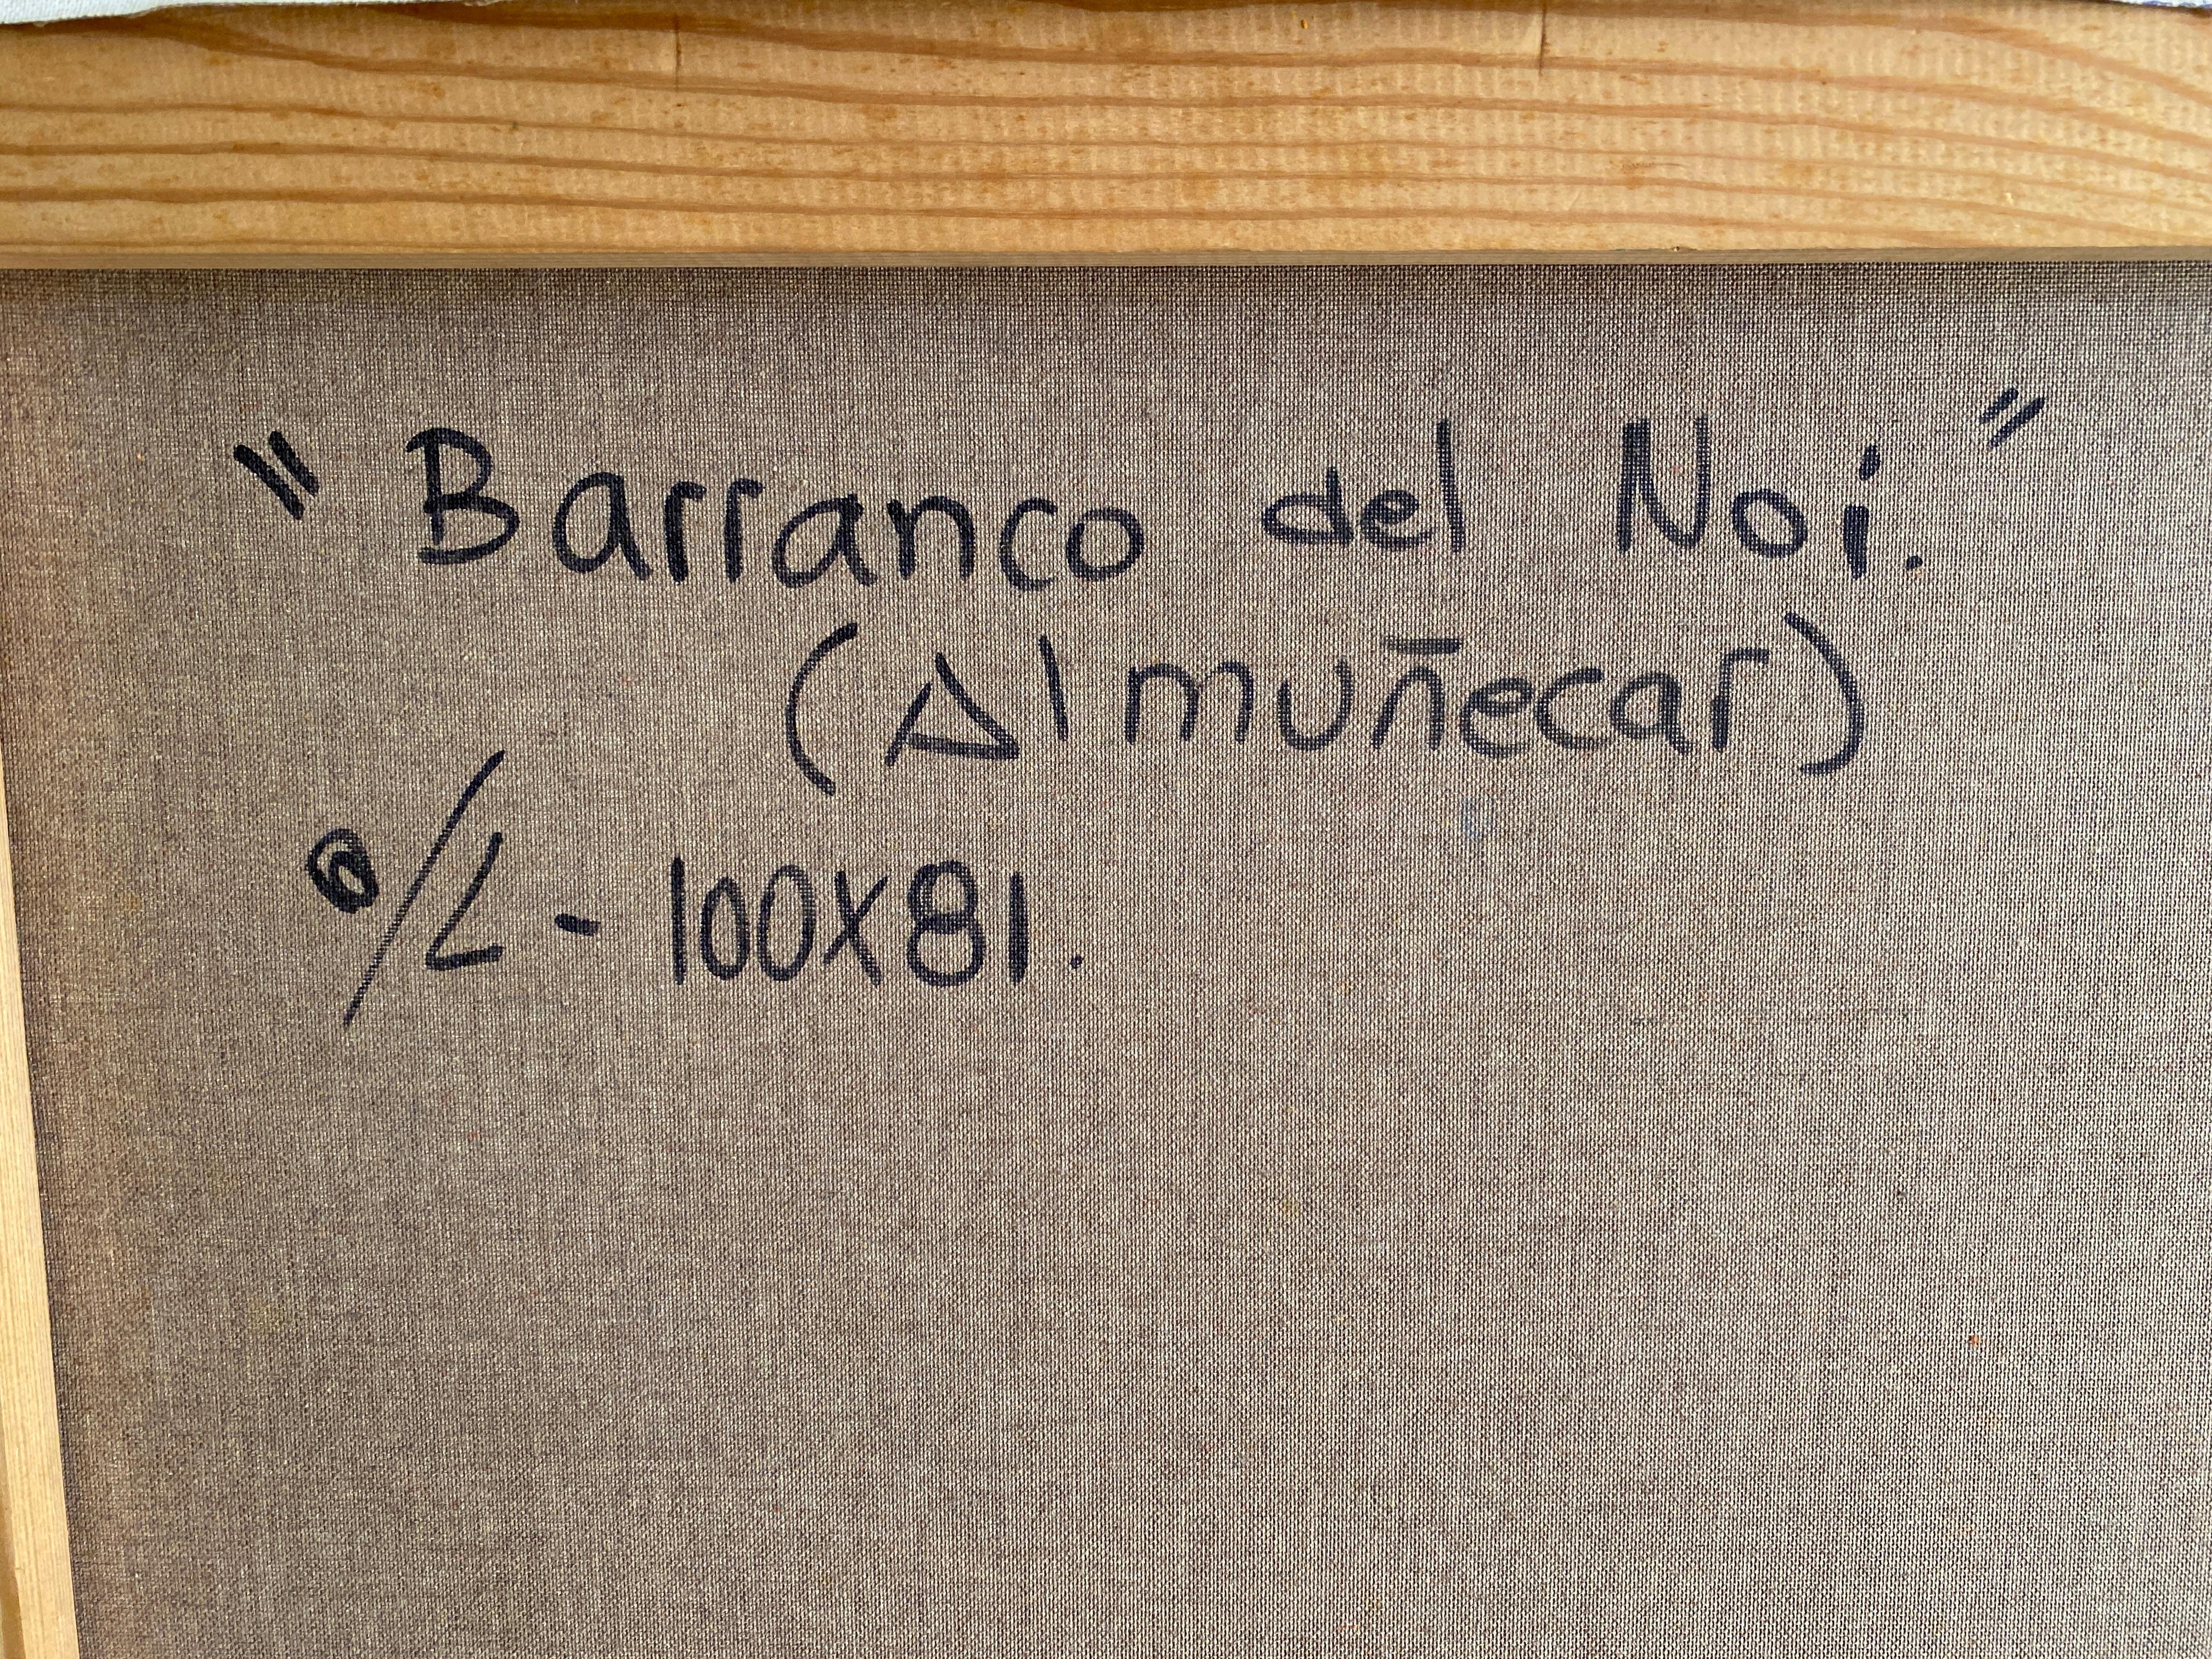 "Barranco del Noi."
(Almuñecar)
o/L - 100x81.